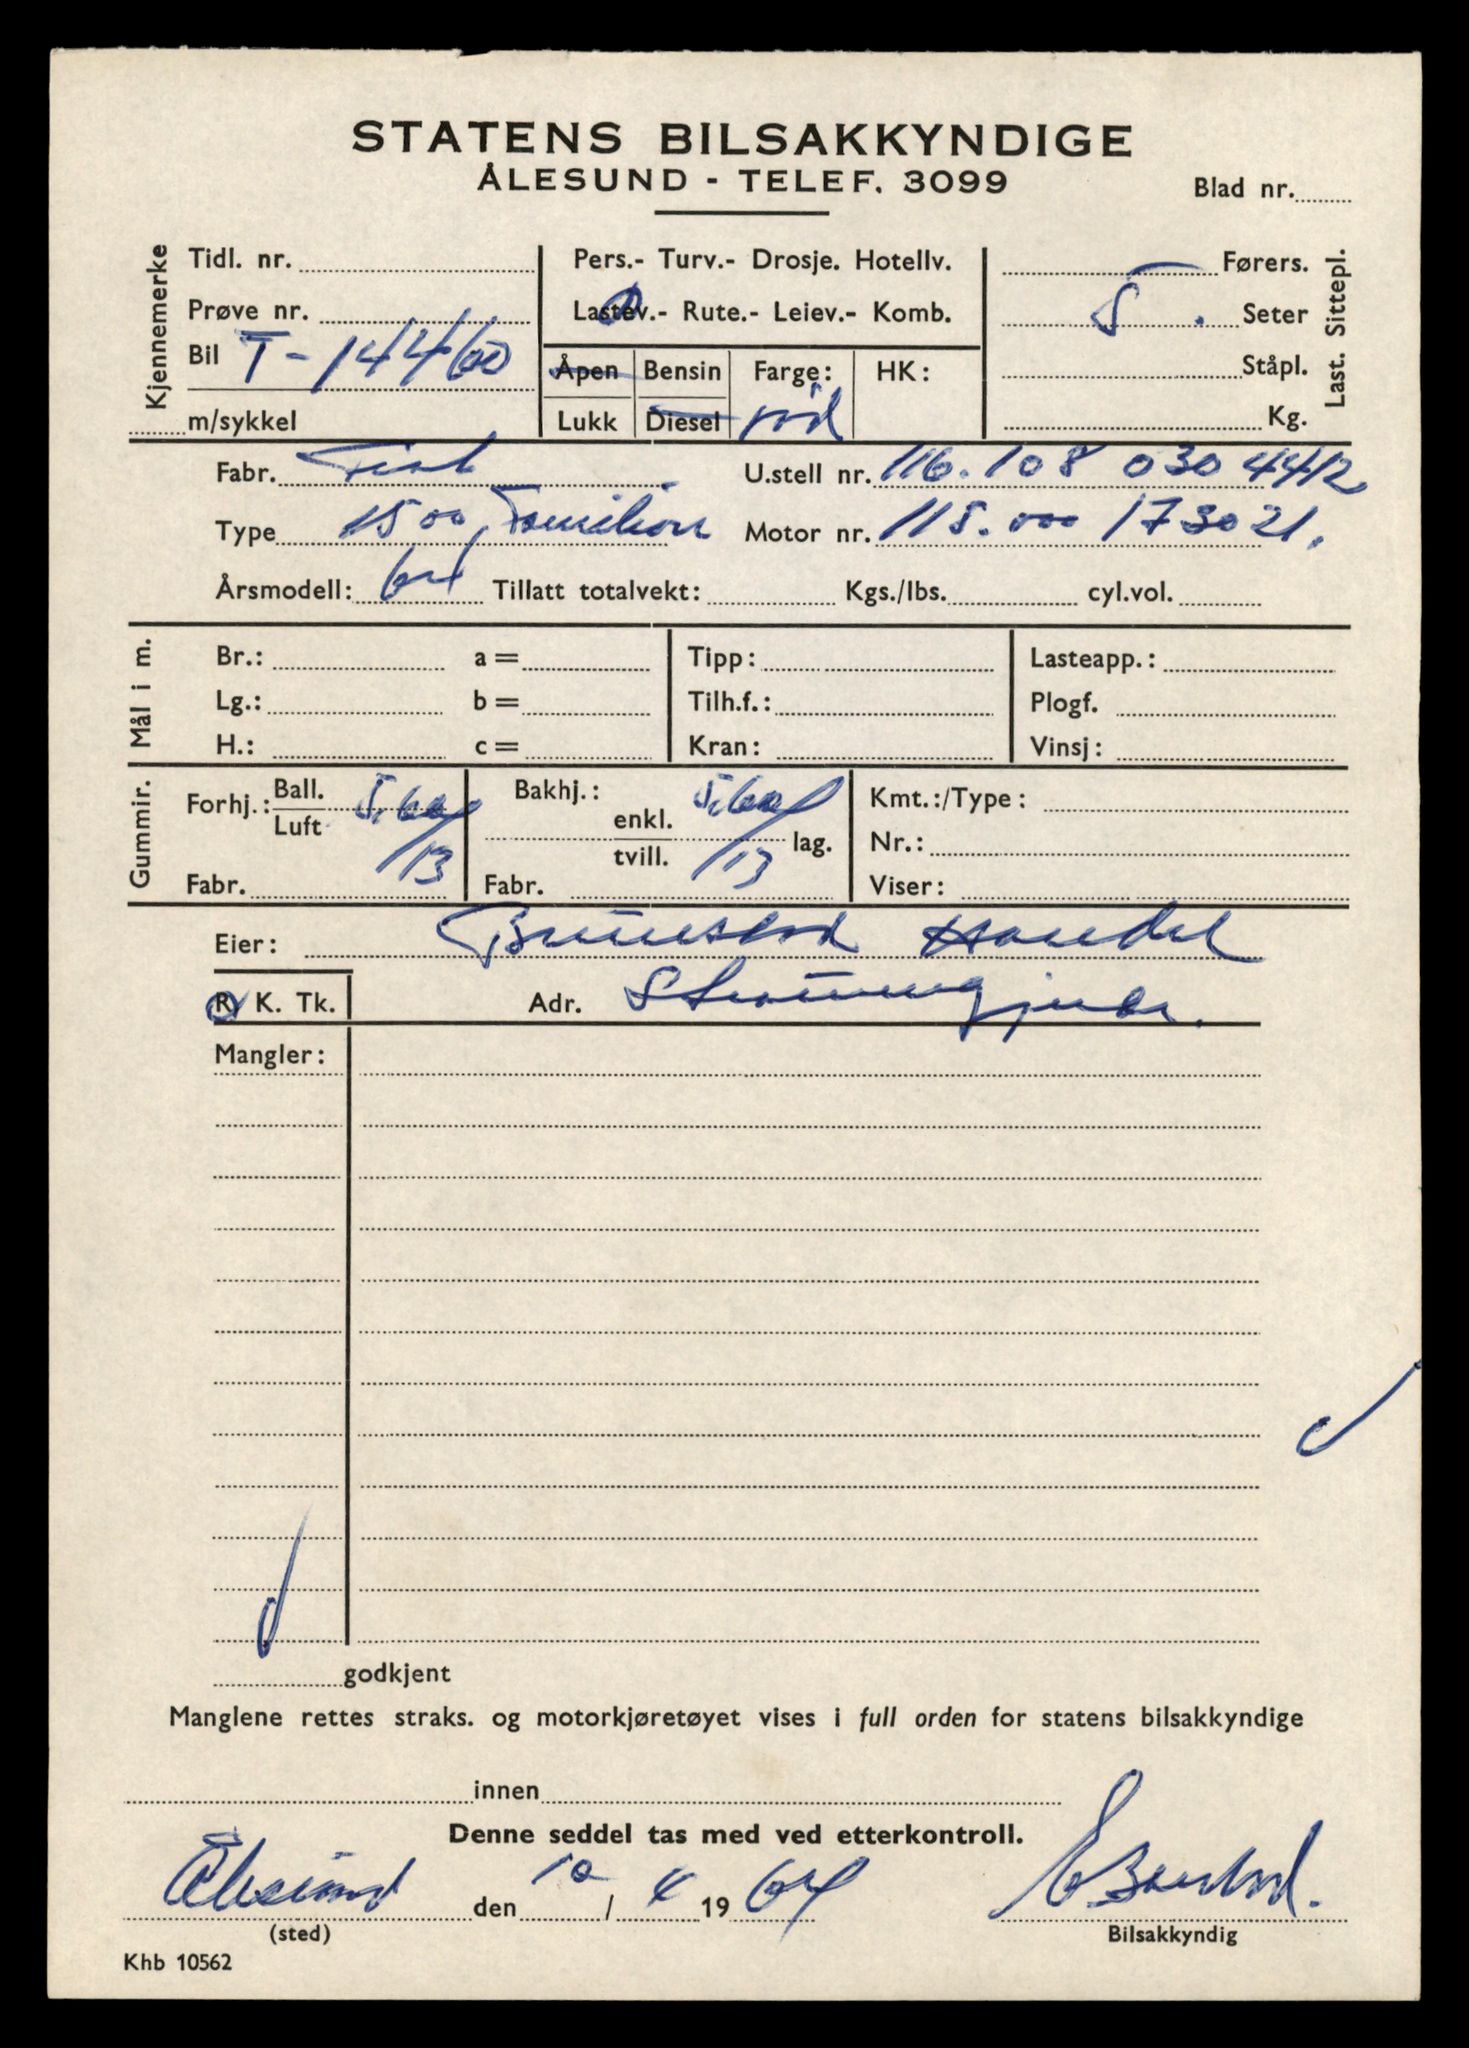 STATENS BILSAKKYNDIGE
ÅLESUND - TELEF. 3099
Blad nr.
Kjennemerke
Tidl. nr.
Prøve nr.
Bil T-14460
m/sykkel
Pers.- Turv.- Drosje. Hotellv.
Lastev.- Rute.- Leiev.- Komb.
Åpen Bensin Farge: HK:
Lukk Diesel rød
Last. Sittepl.
Førers.
5. Seter
Ståpl.
Kg.
Fabr. Fiat U.stell nr. 116.108 030 4412
Type 1500, Familien Motor nr. 115.000 173021.
Årsmodell: 64 Tillatt totalvekt: Kgs./lbs. cyl.vol.
Mål i m.
Br.: a = Tipp: Lasteapp.:
Lg.: b = Tilh.f.: Plogf.
H.: c = Kran: Vinsj:
Gummir.
Forhj.: Ball. Luft 5.60/13
Fabr.
Bakhj.: enkl. tvill. 5.60/13 lag.
Fabr.
Kmt.:/Type:
Nr.:
Viser:
Eier: Brunstad Handel
R. K. Tk. Adr. Straumgjerde.
Mangler:
godkjent
Manglene rettes straks. og motorkjøretøyet vises i full orden for statens bilsakkyndige
innen
Denne seddel tas med ved etterkontroll.
Ålesund den 10/4 1964
(sted) Bilsakkyndig
Khb 10562